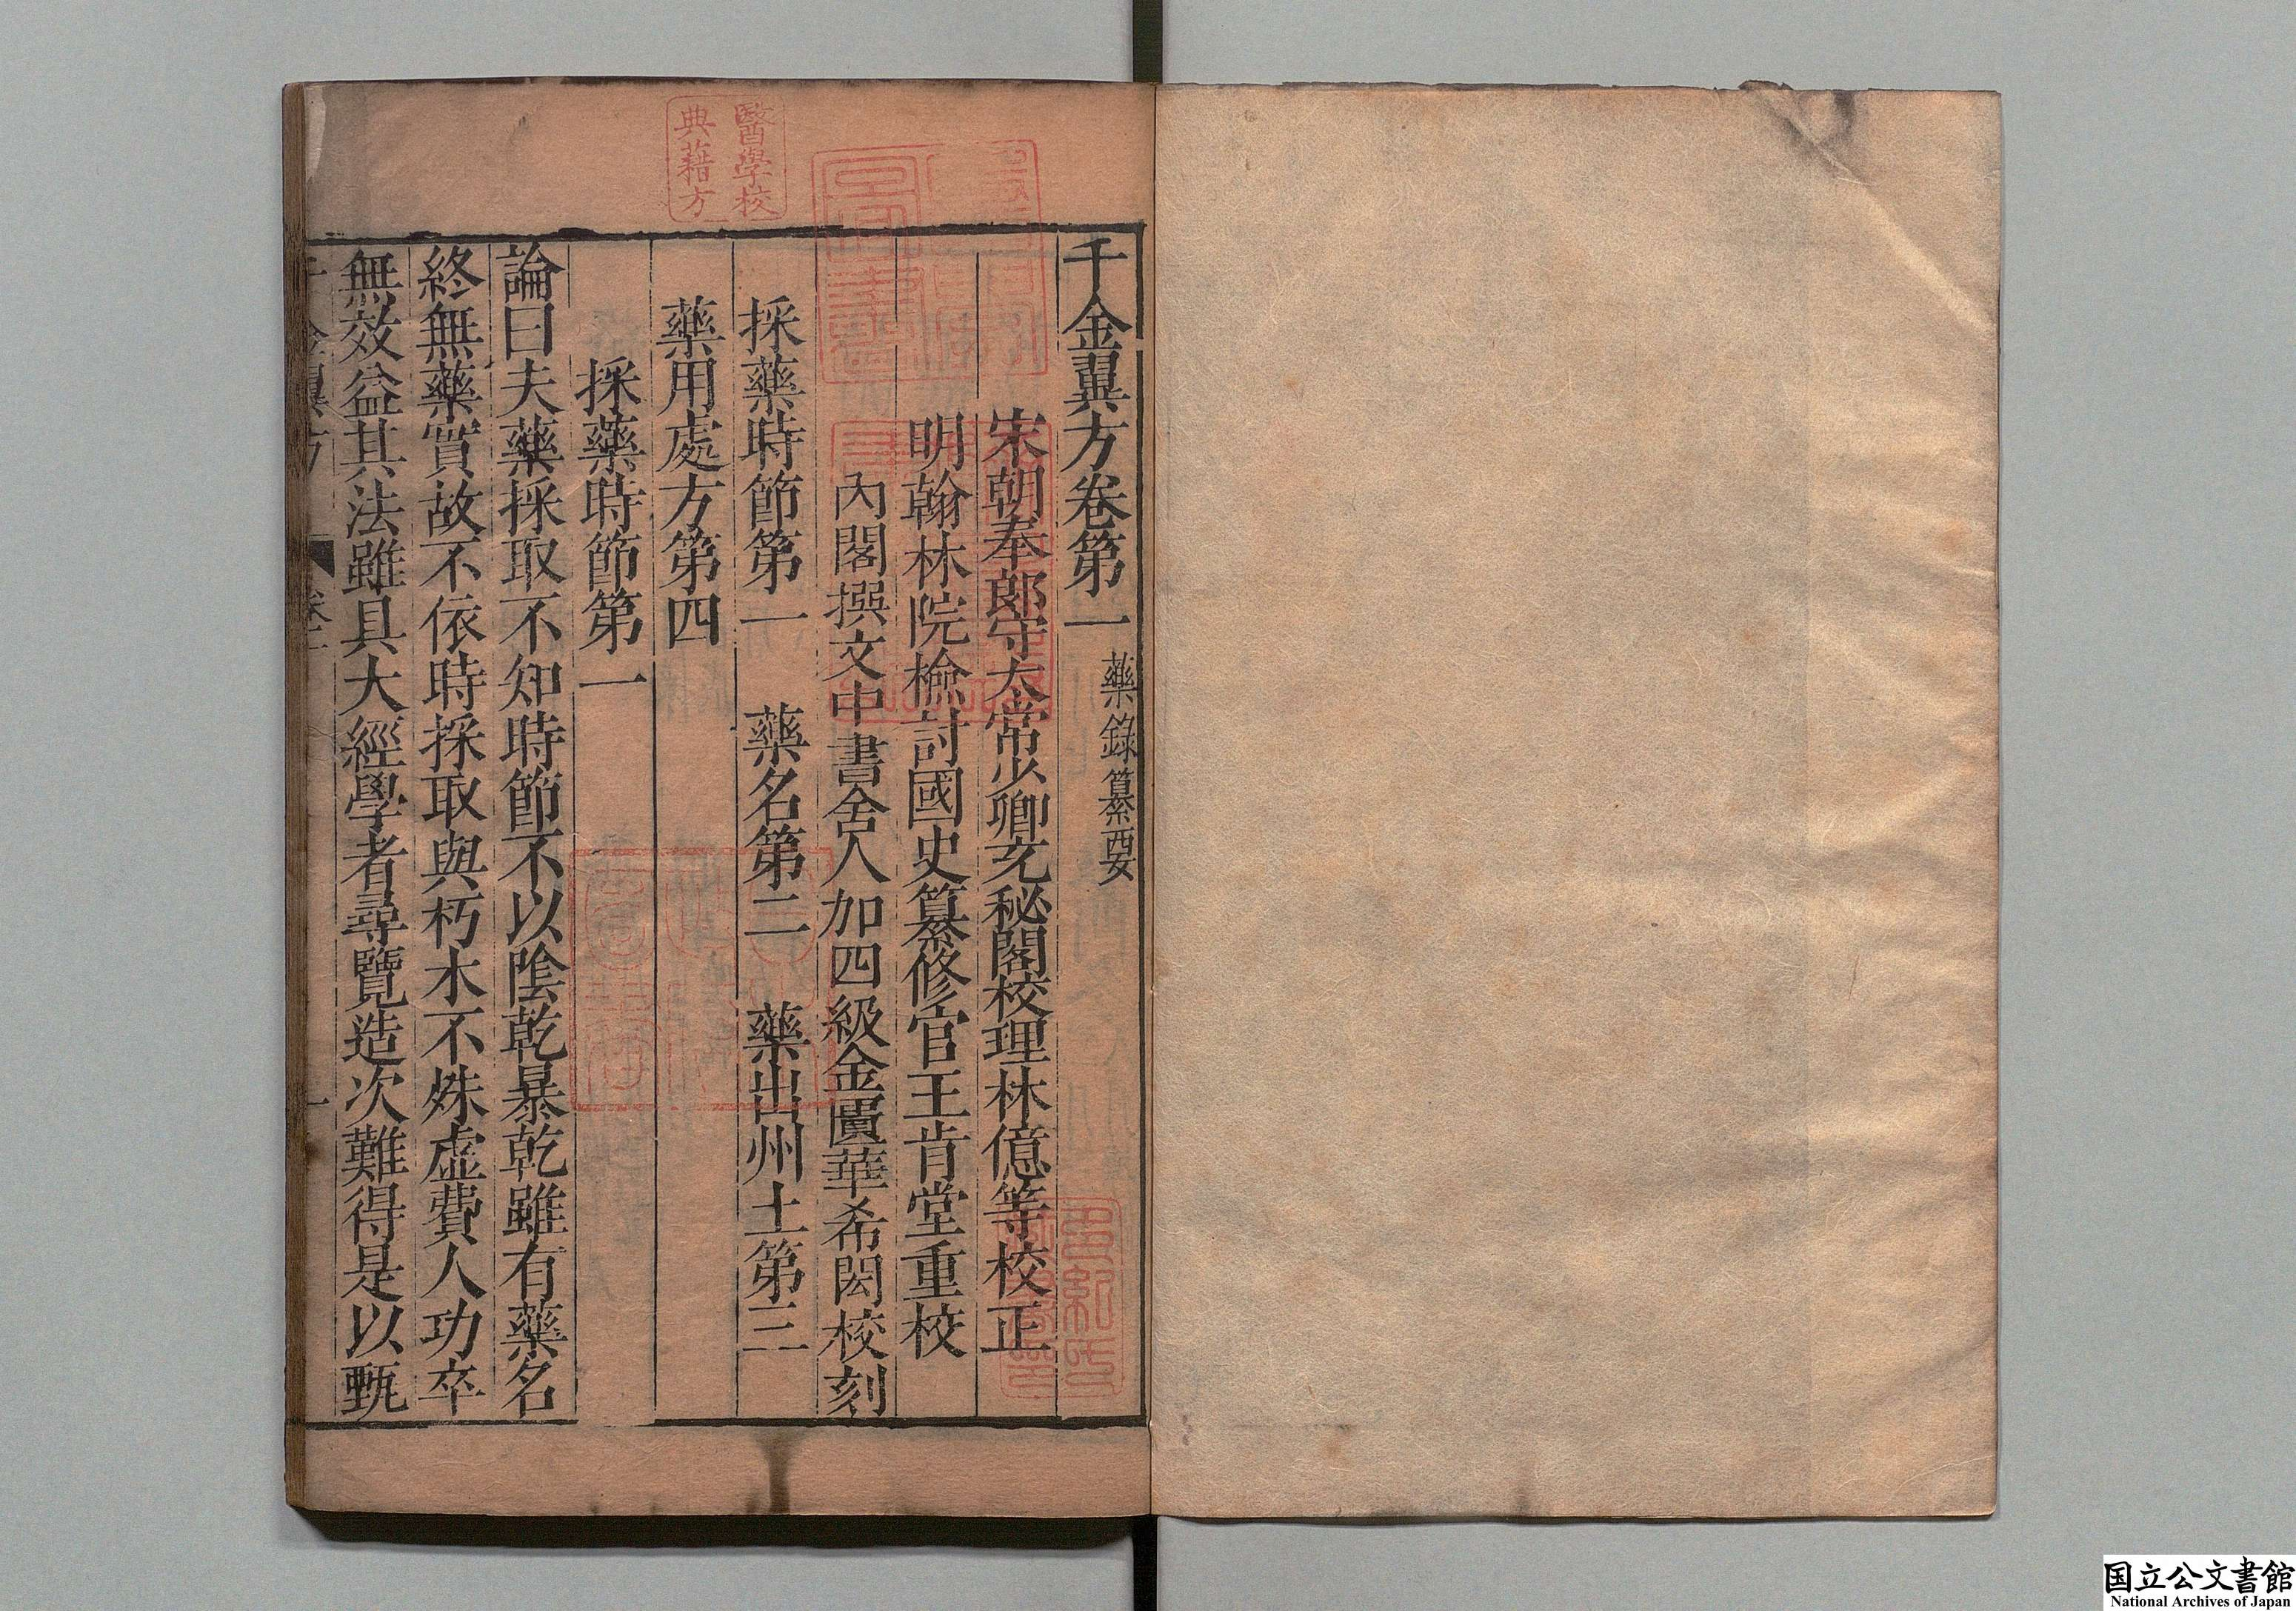 千金翼方卷第一 藥錄纂要
宋朝奉郎守太常少卿充秘閣校理林億等校正
明翰林院檢討國史纂修官王肯堂重校
內閣撰文中書舍人加四級金匱華希閎校刻
採藥時節第一 藥名第二 藥出州土第三
藥用處方第四
採藥時節第一
論曰夫藥採取不知時節不以陰乾暴乾雖有藥名
終無藥實故不依時採取與朽木不殊虛費人功卒
無效益其法雖具大經學者尋覽造次難得是以甄
千金翼方 卷一 一
醫學校
典藉方
国立公文書館
National Archives of Japan